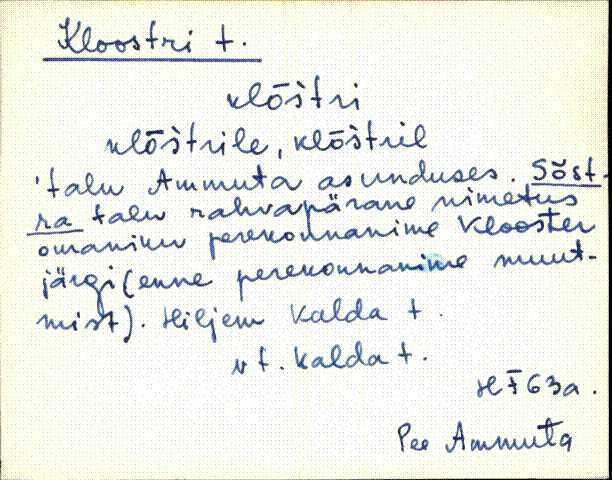 Kloostri t.
klōs̀tri
klōs̀trile, klōs̀tril
'talu Ammuta asunduses. Sõst-
ra talu rahvapärane nimetus
omaniku perekonnanime Klooster
järgi (enne perekonnanime muut-
mist). Hiljem Kalda t.
vt. Kalda t.
63a.
Pee Ammuta